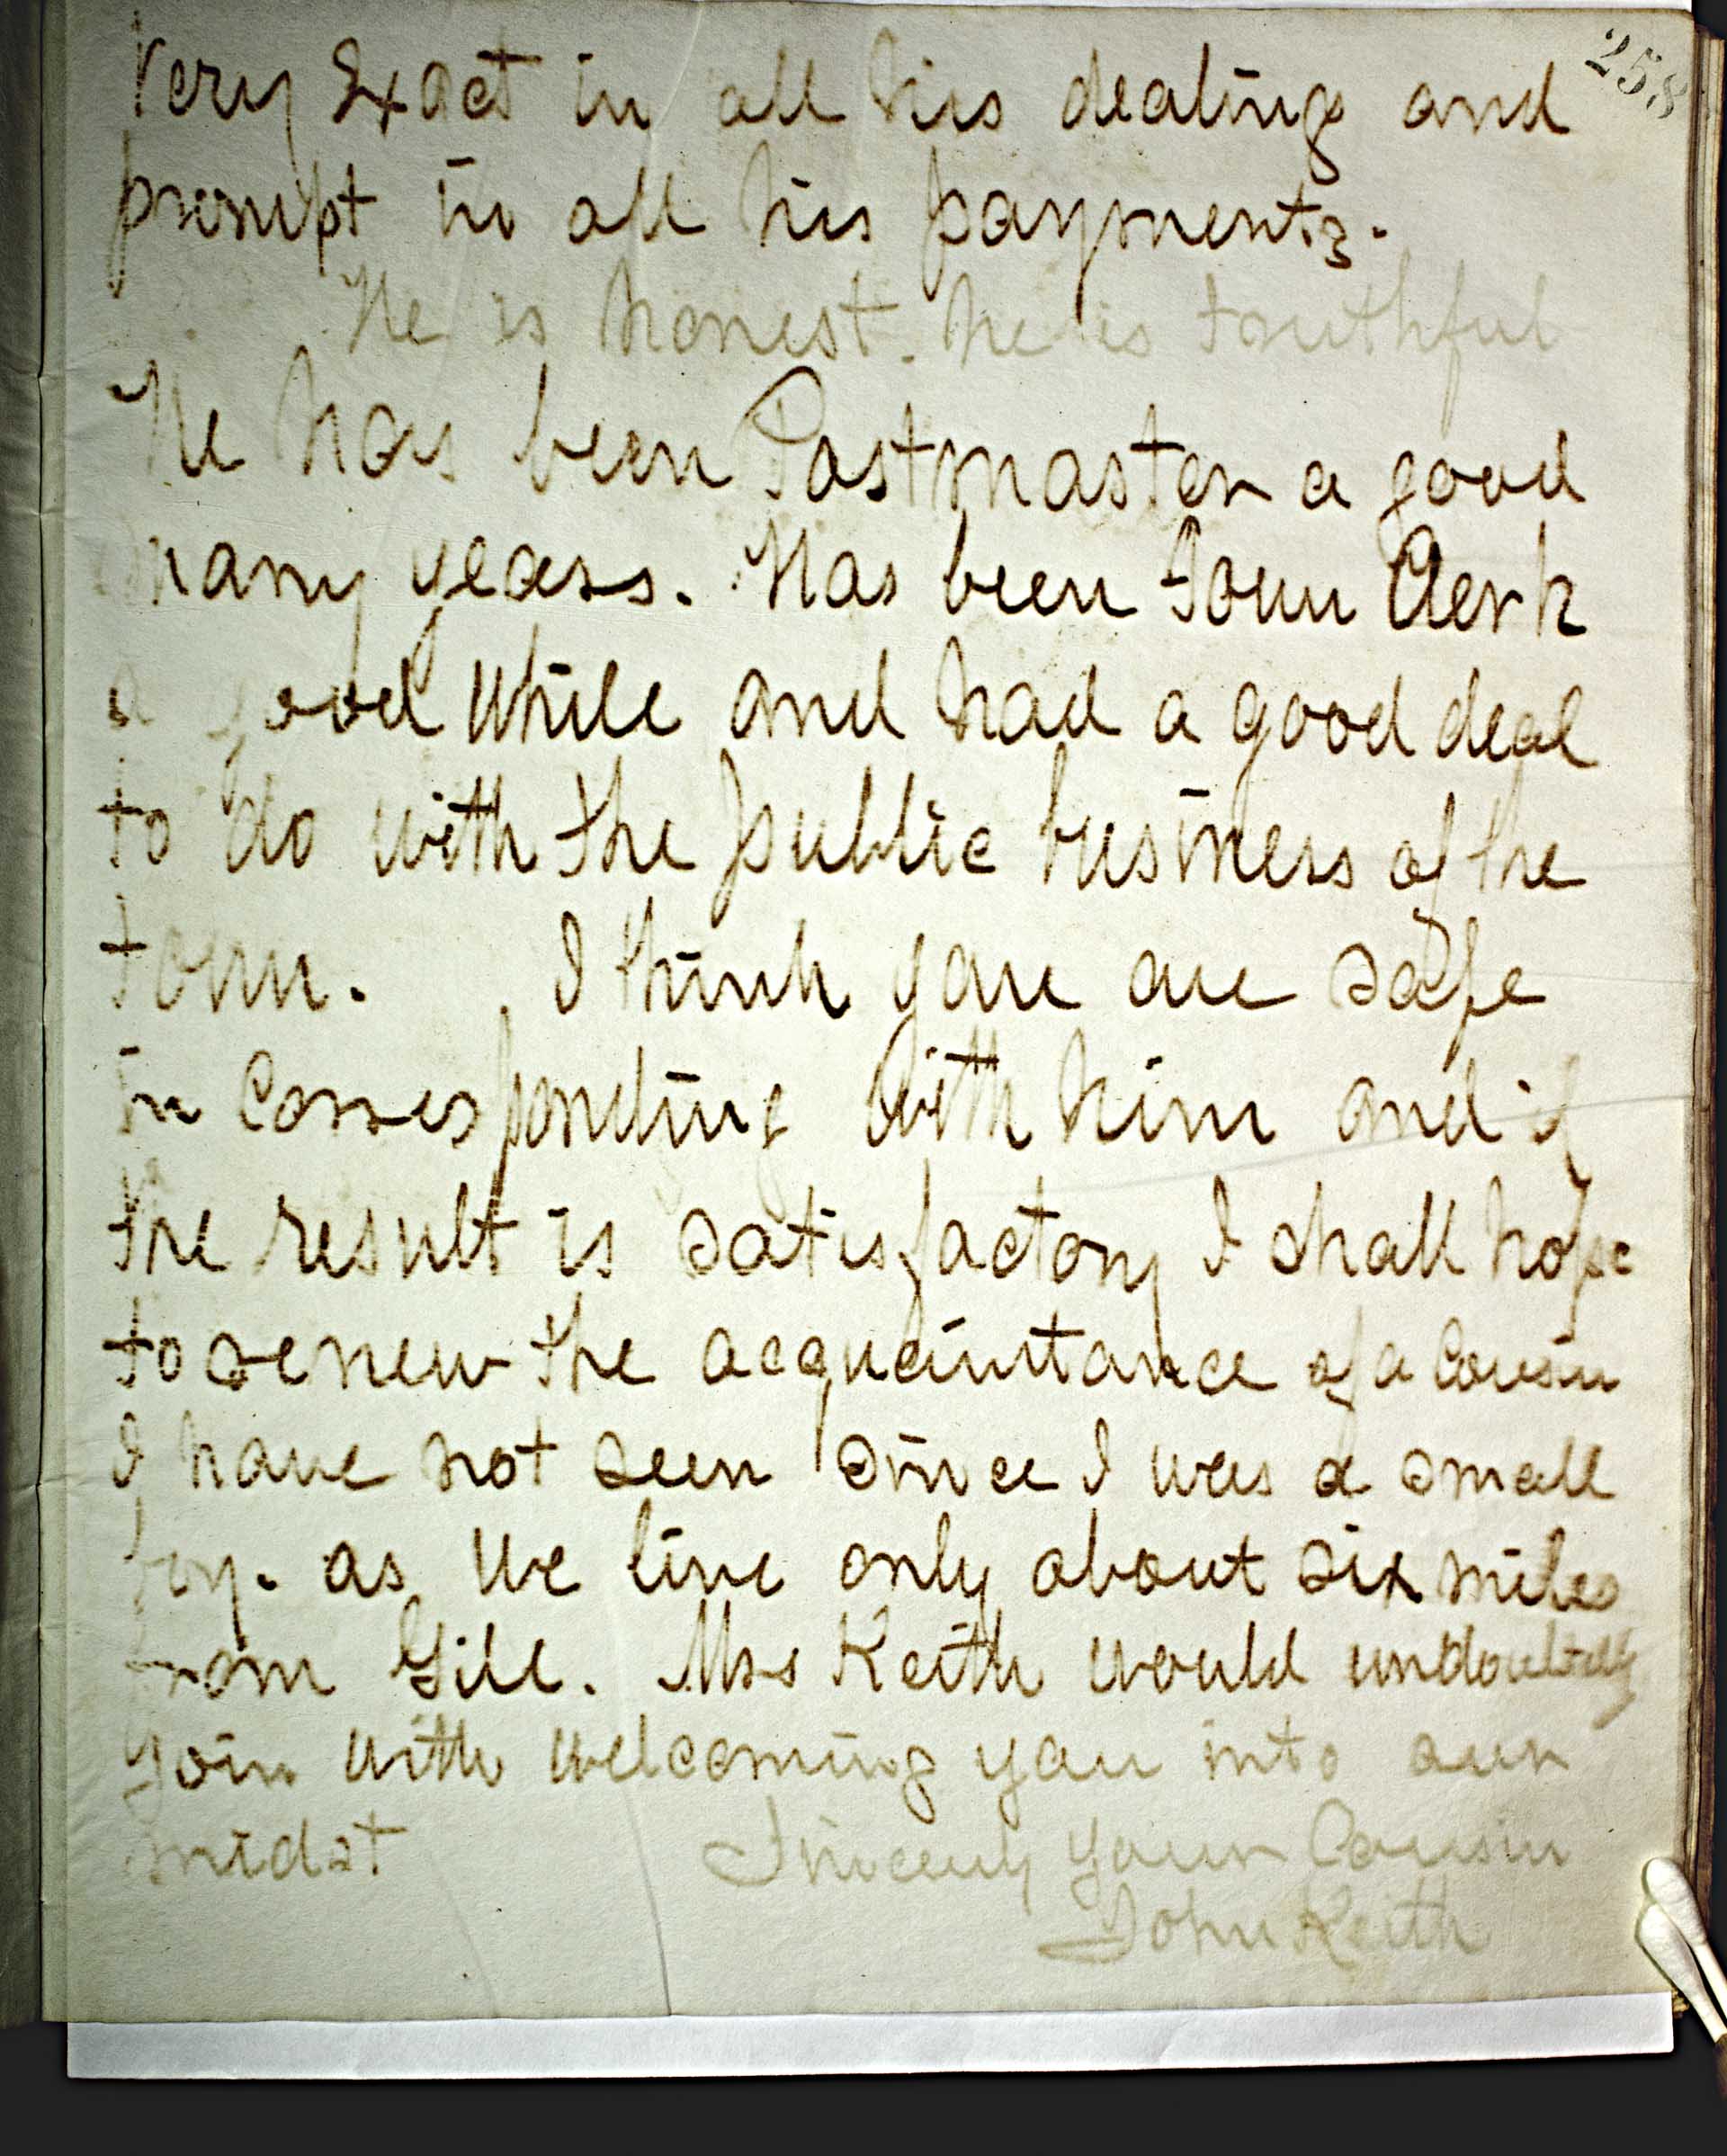 258
Very Exact in all his dealing and
prompt in all his payments.
He is honest. he is truthful
He has been Postmaster a good
many years. Has been Town Clerk
a good while and had a good deal
to do with the public business of the
town. I think you are safe
in Corresponding with him and if
the result is satisfactory I shall hope
to renew the acquaintance of a Cousin
I have not seen since I was a small
boy. as we live only about six miles
from Gill. Mrs Keith would undoubtedly
join with welcoming you into our
midst Sincerely your Cousin
John Keith